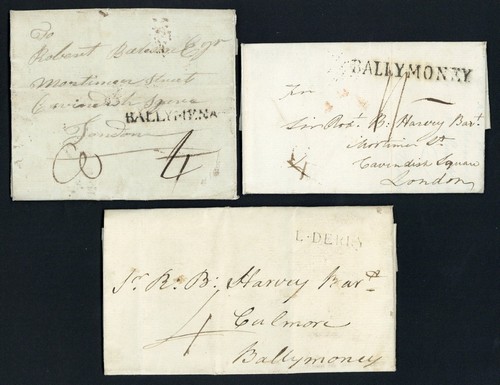 To
Robert
Mortimer Street
Cavendish Square
BALLYMENA
London
8 4
BALLYMONEY
For
Sir Robt B: Harvey Bart
Mortimer St
4
Cavendish Square
London
L-DERRY
Sr R. B: Harvey Bart
4
Culmore
Ballymoney